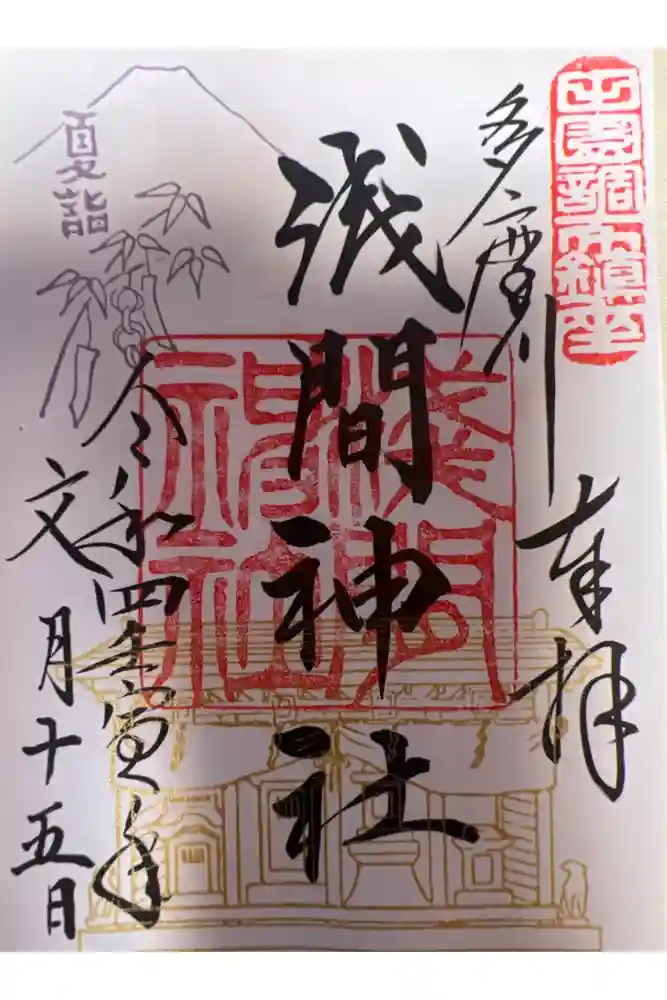 田園調布鎮座
多摩川
奉拝
浅間神社
淺間神社
夏詣
令和四壬寅年
文月十五日